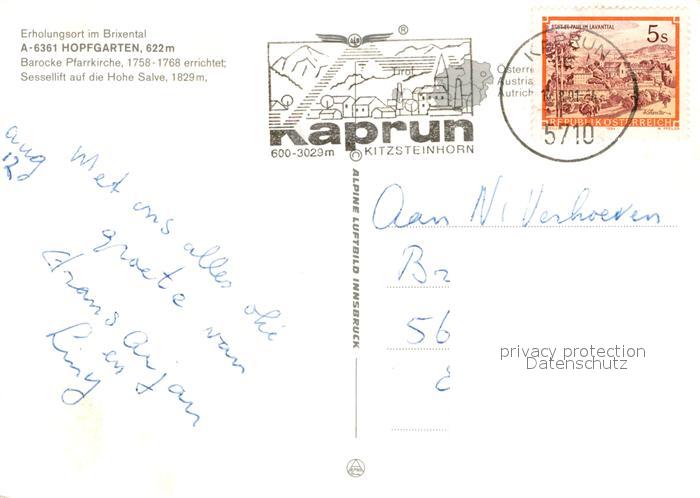 Erholungsort im Brixental
A-6361 HOPFGARTEN, 622 m
Barocke Pfarrkirche, 1758-1768 errichtet;
Sessellift auf die Hohe Salve, 1829 m,
Tirol
Kaprun
600-3029m KITZSTEINHORN
Österre
Austria
Autrich
KAPRUN
5710
STIFT ST. PAUL IM LAVANTTAL
5s
REPUBLIK ÖSTERREICH
ALPINE LUFTBILD INNSBRUCK
aug
Met ons alles oké
groete van
Frans Arjan
en
Riny
Aan N. Verhoeven
Br
56
privacy protection
Datenschutz